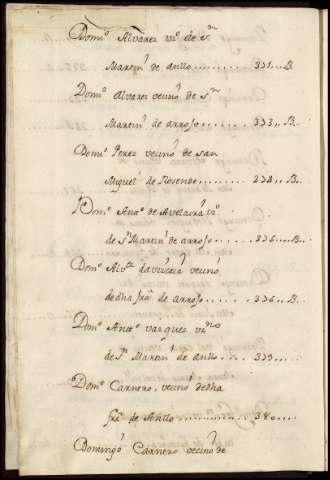 Domº Alvarez vº de sⁿ
Martinˢ de anllo .......... 331..B.
Domº alvarez vecinº de sⁿ
Martinˢ de arrojo ........ 333..B.
Domº Perez vecinº de san
Miguelˢ de Rosende ........ 334..B.
Domº de Avelairá vº
de sⁿ Martinˢ de arrojo ...... 335...B.
Domº vecinº
de dha de arrojo ....... 336..B.
Domº Antº vazquez vºⁿº
de sⁿ Martinˢ de anllo .... 339....
Domº Carnero, vecinº de dha
de Anllo .......... 340....
Domingº Carnero vecinº de